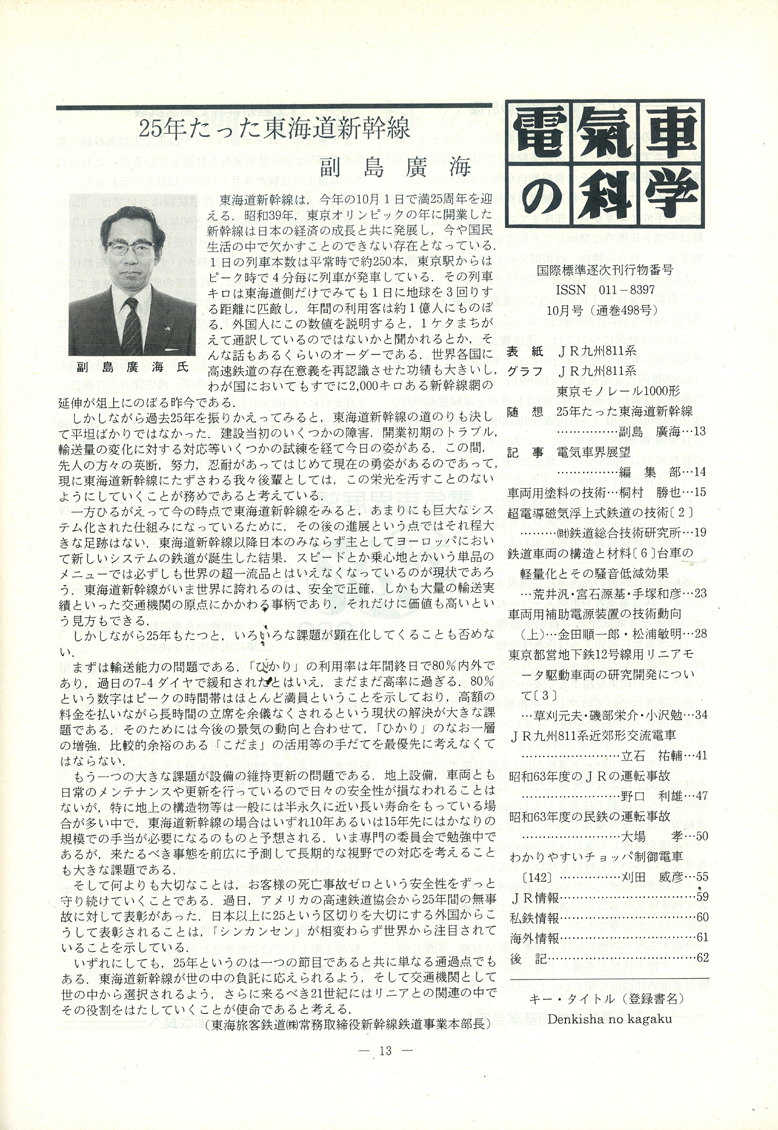 25年たった東海道新幹線
副島廣海
東海道新幹線は，今年の10月1日で満25周年を迎
える．昭和39年，東京オリンピックの年に開業した
新幹線は日本の経済の成長と共に発展し，今や国民
生活の中で欠かすことのできない存在となっている．
1日の列車本数は平常時で約250本，東京駅からは
ピーク時で4分毎に列車が発車している．その列車
キロは東海道側だけでみても1日に地球を3回りす
る距離に匹敵し，年間の利用客は約1億人にものぼ
る．外国人にこの数値を説明すると，1ケタまちが
えて通訳しているのではないかと聞かれるとか，そ
んな話もあるくらいのオーダーである．世界各国に
高速鉄道の存在意義を再認識させた功績も大きいし，
わが国においてもすでに2,000キロある新幹線網の
副島廣海氏
延伸が俎上にのぼる昨今である．
しかしながら過去25年を振りかえってみると，東海道新幹線の道のりも決し
て平坦ばかりではなかった．建設当初のいくつかの障害，開業初期のトラブル，
輸送量の変化に対する対応等いくつかの試練を経て今日の姿がある．この間，
先人の方々の英断，努力，忍耐があってはじめて現在の勇姿があるのであって，
現に東海道新幹線にたずさわる我々後輩としては，この栄光を汚すことのない
ようにしていくことが務めであると考えている．
一方ひるがえって今の時点で東海道新幹線をみると，あまりにも巨大なシス
テム化された仕組みになっているために，その後の進展という点ではそれ程大
きな足跡はない．東海道新幹線以降日本のみならず主としてヨーロッパにおい
て新しいシステムの鉄道が誕生した結果，スピードとか乗心地とかいう単品の
メニューでは必ずしも世界の超一流品とはいえなくなっているのが現状であろ
う．東海道新幹線がいま世界に誇れるのは，安全で正確，しかも大量の輸送実
績といった交通機関の原点にかかわる事柄であり，それだけに価値も高いとい
う見方もできる．
しかしながら25年もたつと，いろいろな課題が顕在化してくることも否めな
い．
まずは輸送能力の問題である．「ひかり」の利用率は年間終日で80％内外で
あり，過日の7-4ダイヤで緩和されたとはいえ，まだまだ高率に過ぎる．80％
という数字はピークの時間帯はほとんど満員ということを示しており，高額の
料金を払いながら長時間の立席を余儀なくされるという現状の解決が大きな課
題である．そのためには今後の景気の動向と合わせて，「ひかり」のなお一層
の増強，比較的余裕のある「こだま」の活用等の手だてを最優先に考えなくて
はならない．
もう一つの大きな課題が設備の維持更新の問題である．地上設備，車両とも
日常のメンテナンスや更新を行っているので日々の安全性が損なわれることは
ないが，特に地上の構造物等は一般には半永久に近い長い寿命をもっている場
合が多い中で，東海道新幹線の場合はいずれ10年あるいは15年先にはかなりの
規模での手当が必要になるのものと予想される．いま専門の委員会で勉強中で
あるが，来たるべき事態を前広に予測して長期的な視野での対応を考えること
も大きな課題である．
そして何よりも大切なことは，お客様の死亡事故ゼロという安全性をずっと
守り続けていくことである．過日，アメリカの高速鉄道協会から25年間の無事
故に対して表彰があった．日本以上に25という区切りを大切にする外国からこ
うして表彰されることは，「シンカンセン」が相変わらず世界から注目されて
いることを示している．
いずれにしても，25年というのは一つの節目であると共に単なる通過点でも
ある．東海道新幹線が世の中の負託に応えられるよう，そして交通機関として
世の中から選択されるよう，さらに来るべき21世紀にはリニアとの関連の中で
その役割をはたしていくことが使命であると考える．
（東海旅客鉄道㈱常務取締役新幹線鉄道事業本部長）
電氣車
の科学
国際標準逐次刊行物番号
ISSN 011－8397
10月号（通巻498号）
表紙 ＪＲ九州811系
グラフ ＪＲ九州811系
東京モノレール1000形
随想 25年たった東海道新幹線
……………副島 廣海…13
記事 電気車界展望
……………編集部…14
車両用塗料の技術…桐村 勝也…15
超電導磁気浮上式鉄道の技術〔2〕
………㈶鉄道総合技術研究所…19
鉄道車両の構造と材料〔6〕台車の
軽量化とその騒音低減効果
…荒井汎・宮石源基・手塚和彦…23
車両用補助電源装置の技術動向
（上）…金田順一郎・松浦敏明…28
東京都営地下鉄12号線用リニアモ
ータ駆動車両の研究開発につい
て〔3〕
…草刈元夫・磯部栄介・小沢勉…34
ＪＲ九州811系近郊形交流電車
……………………立石 祐輔…41
昭和63年度のＪＲの運転事故
……………………野口 利雄…47
昭和63年度の民鉄の運転事故
……………………大場 孝…50
わかりやすいチョッパ制御電車
〔142〕……………刈田 威彦…55
ＪＲ情報……………………………59
私鉄情報……………………………60
海外情報……………………………61
後記…………………………………62
キー・タイトル（登録書名）
Denkisha no kagaku
— 13 —